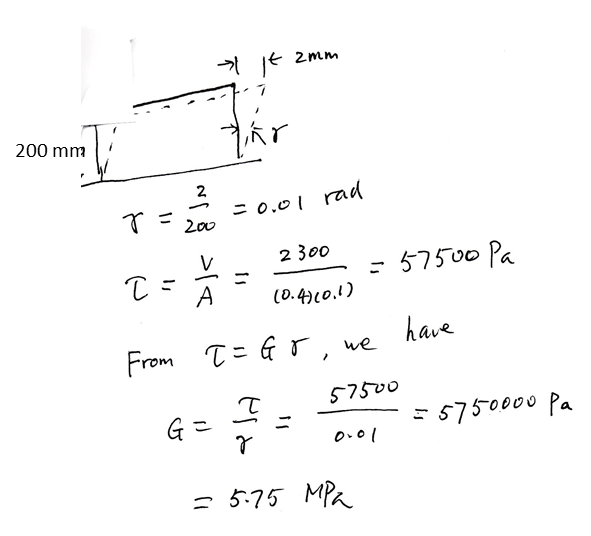 →| |← 2mm
200 mm
γ
γ = 2/200 = 0.01 rad
τ = V/A = 2300/(0.4)(0.1) = 57500 Pa
From τ = G γ, we have
G = τ/γ = 57500/0.01 = 5750000 Pa
= 5.75 MPa